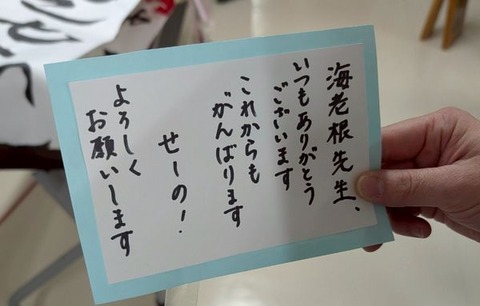 海老根先生、
いつもありがとう
ございます
これからも
がんばります
せーの！
よろしく
お願いします